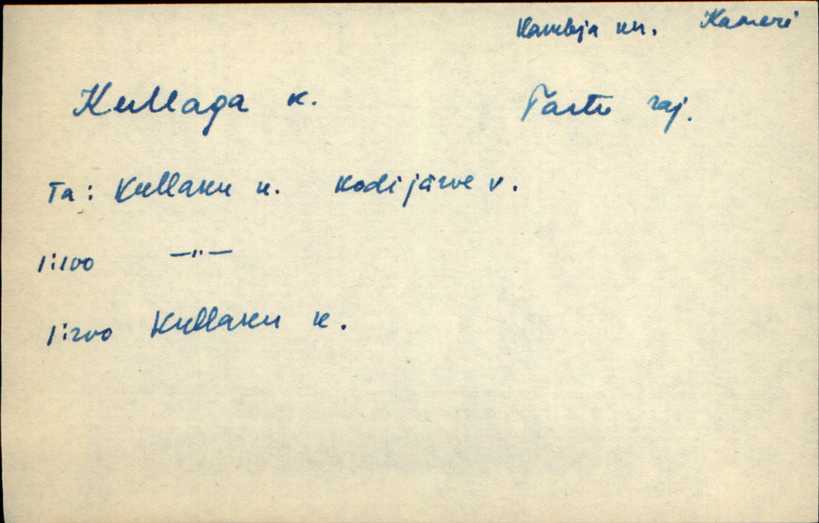 Kambja kn. Kameri
Kullaga k. Tartu raj.
Ta: Kullaku k. Kodijärve v.
1:100 —"—
1:200 Kullaku k.